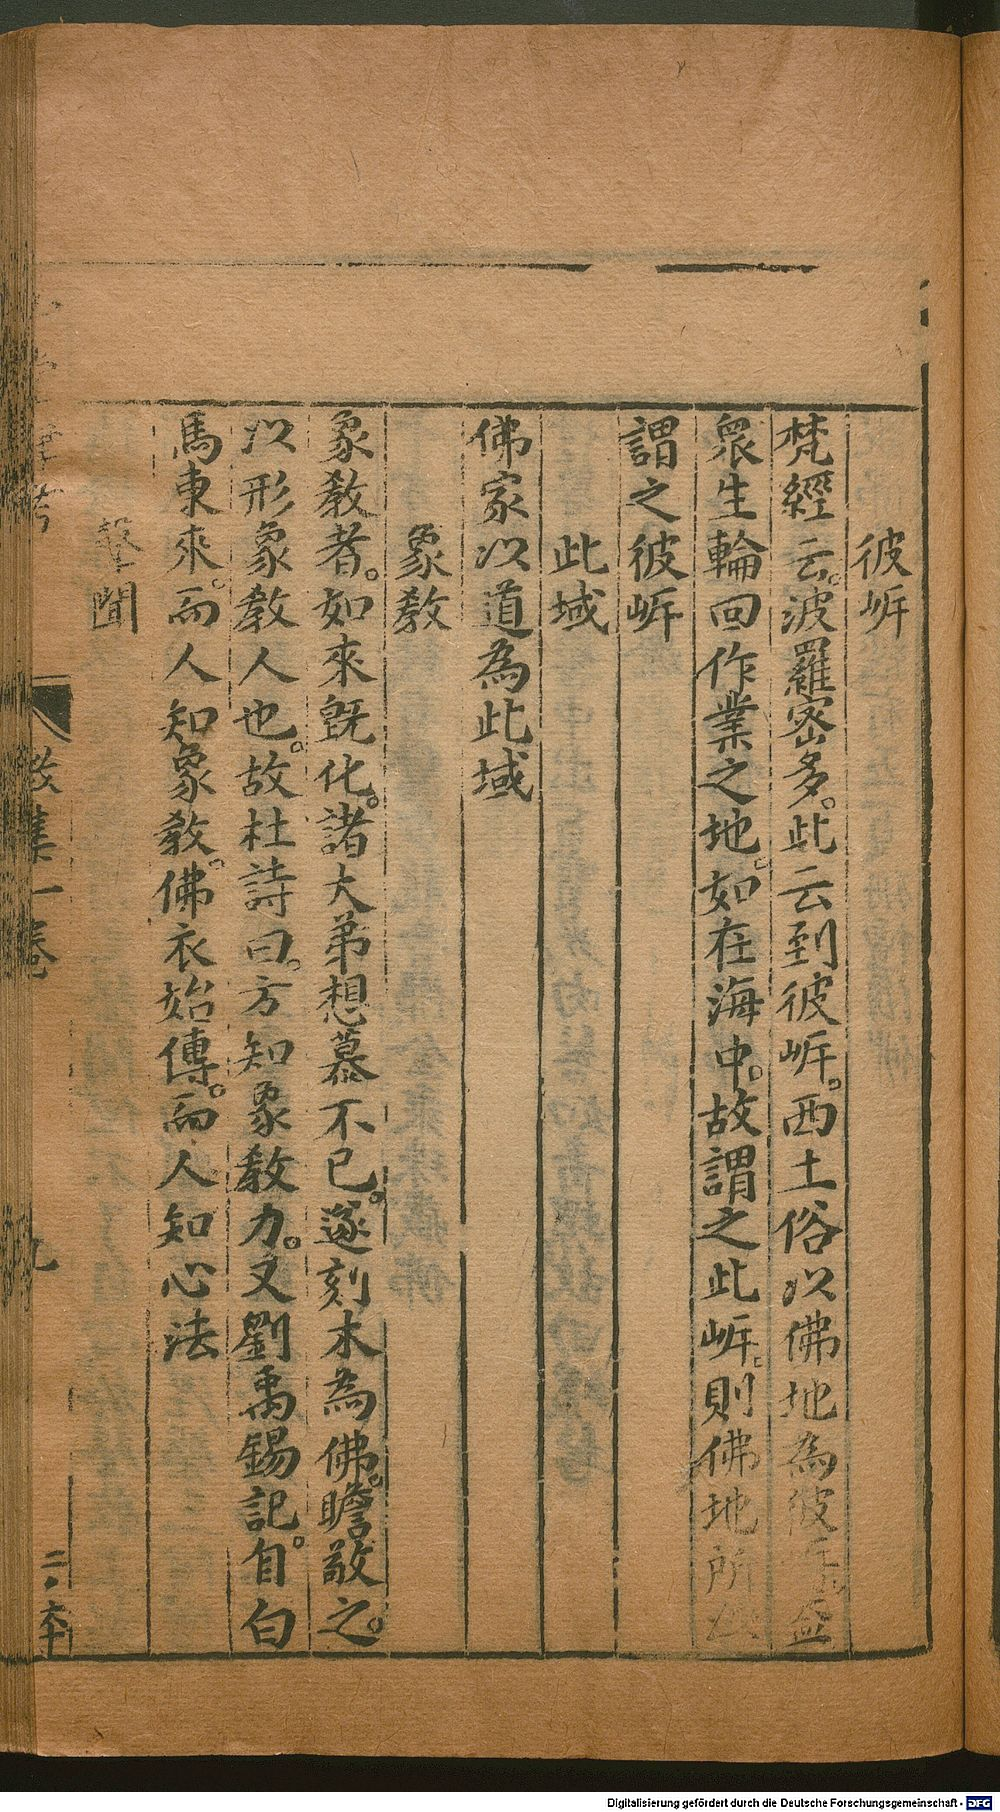 彼岍
梵經云。波羅宻多。此云到彼岍。西土俗以佛地為彼岸。盖
衆生輪回作業之地。如在海中。故謂之此岍。則佛地所以
謂之彼岍
此域
佛家以道為此域
象教
象教者。如來旣化。諸大弟想慕不已。遂刻木為佛。瞻敬之。
以形象教人也。故杜詩曰。方知象教力。又劉禹錫記。自白
馬東來。而人知象教。佛衣始傳。而人知心法
聲聞
考
後集一卷
九
二 本
Digitalisierung gefördert durch die Deutsche Forschungsgemeinschaft - DFG